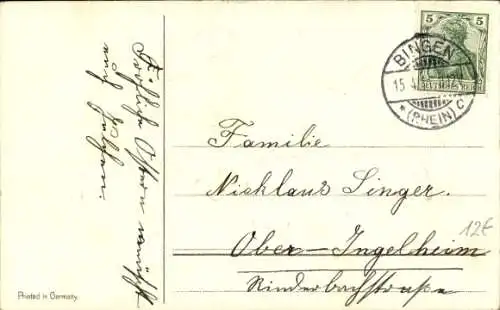 Fröhliche Ostern wünscht
auf
5
DEUTSCHES REICH
BINGEN
15.4.
* (RHEIN) C
Familie
Nicklaus Singer.
Ober-Ingelheim
Rinderbachstraße
12€
Printed in Germany